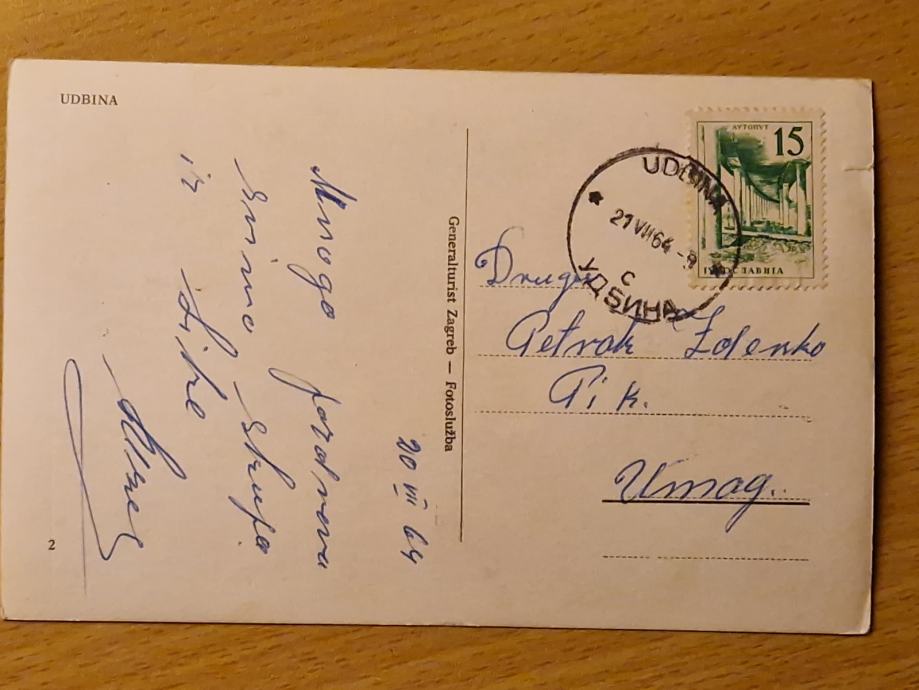 UDBINA
20 VII 64
Mnogo pozdrava
svima skupa
iz Like
2
Generalturist Zagreb — Fotoslužba
АУТОПУТ
15
ЈУГОСЛАВИЈА
UDBINA
21 VII 64 - 9
c
УДБИНА
Drugu
Petrak Zdenko
P i K.
Umag.